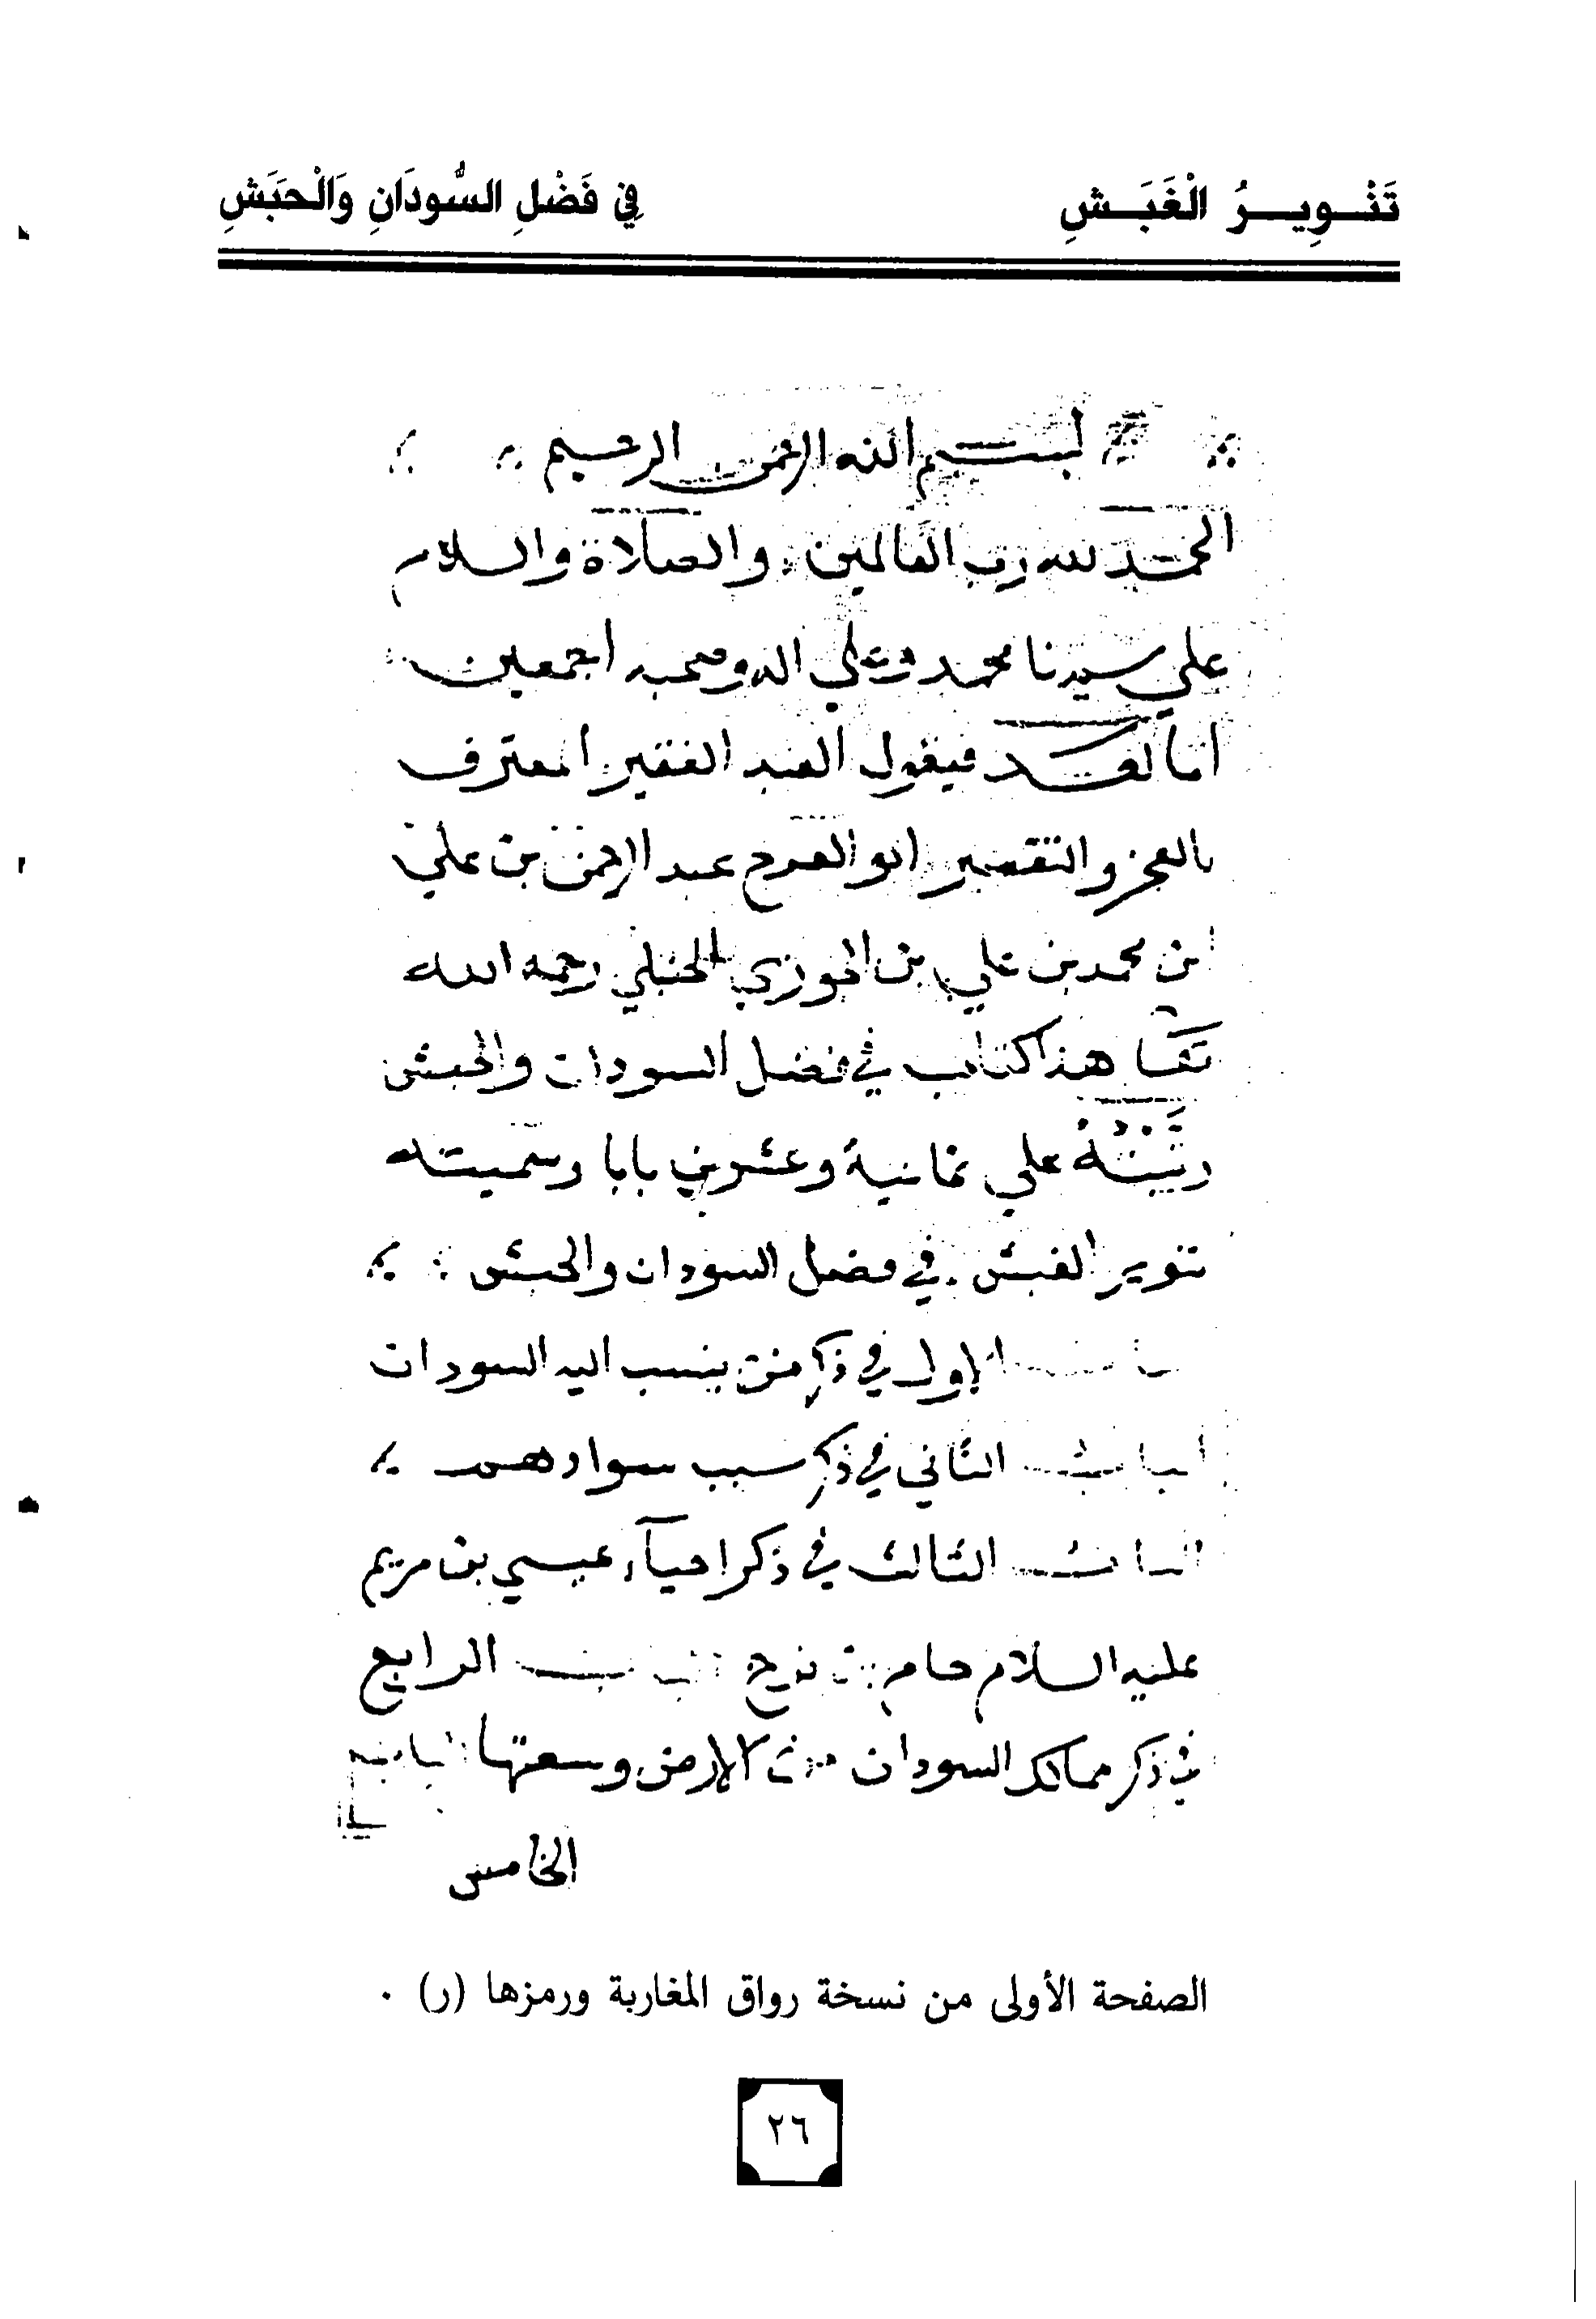 تَنْوِيرُ الْغَبَشِ فِي فَضْلِ السُّودَانِ وَالْحَبَشِ
بسم الله الرحمن الرحيم
الحمد لله رب العالمين والصلاة والسلام
علي سيدنا محمد وعلي اله وصحبه اجمعين
اما بعد فيقول العبد الفقير المعترف
بالعجز والتقصير ابو الفرج عبد الرحمن بن علي
ابن محمد بن علي بن الجوزي الحنبلي رحمه الله
تعا هذا كتاب في فضل السودان والحبش
رتبته علي ثمانية وعشرين بابا وسميته
تنوير الغبش في فضل السودان والحبش
الاول في ذكر من ينسب اليه السودان
الباب الثاني في ذكر سبب سوادهم
الباب الثالث في ذكر احيآء عيسي بن مريم
عليه السلام حام بن نوح الباب الرابع
في ذكر ممالك السودان من الارض وسعتها الباب
الخامس
الصفحة الأولى من نسخة رواق المغاربة ورمزها (ر) .
٢٦